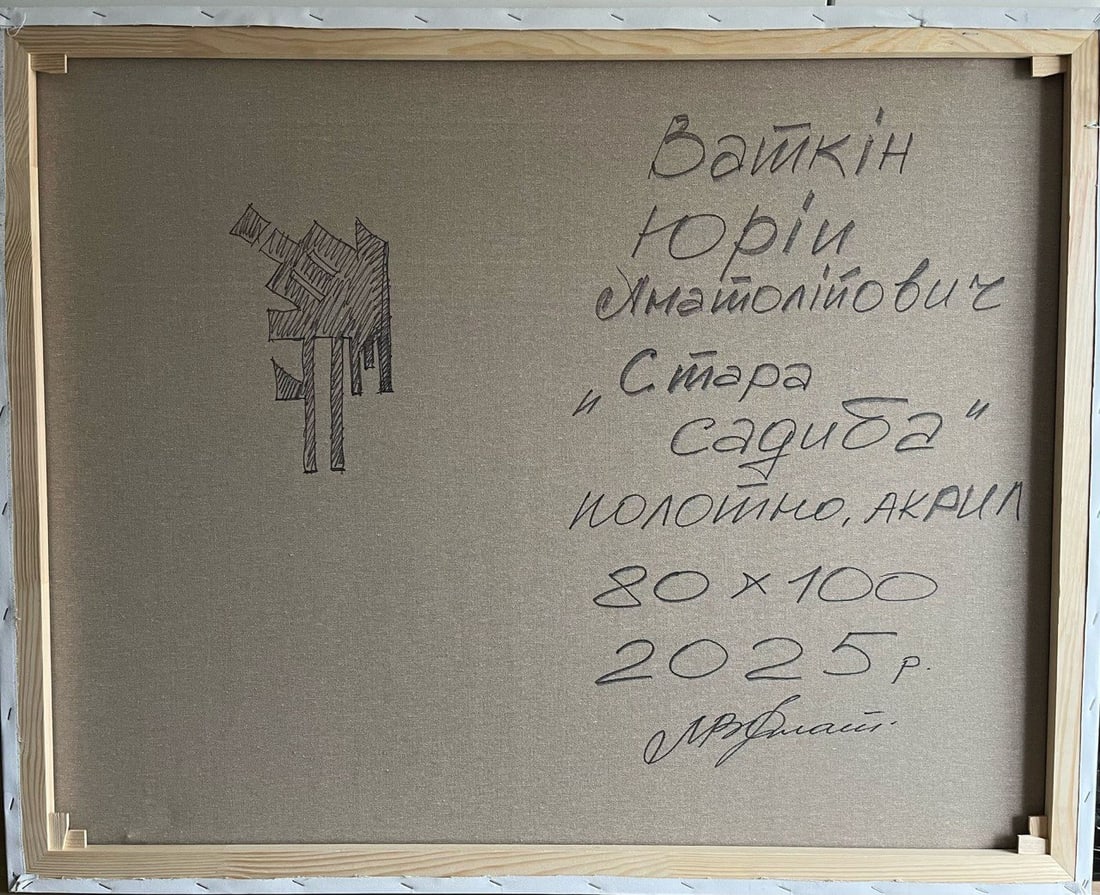 Ваткін
Юрій
Анатолійович
„Стара
садиба"
полотно, акрил
80 х 100
2025 р.